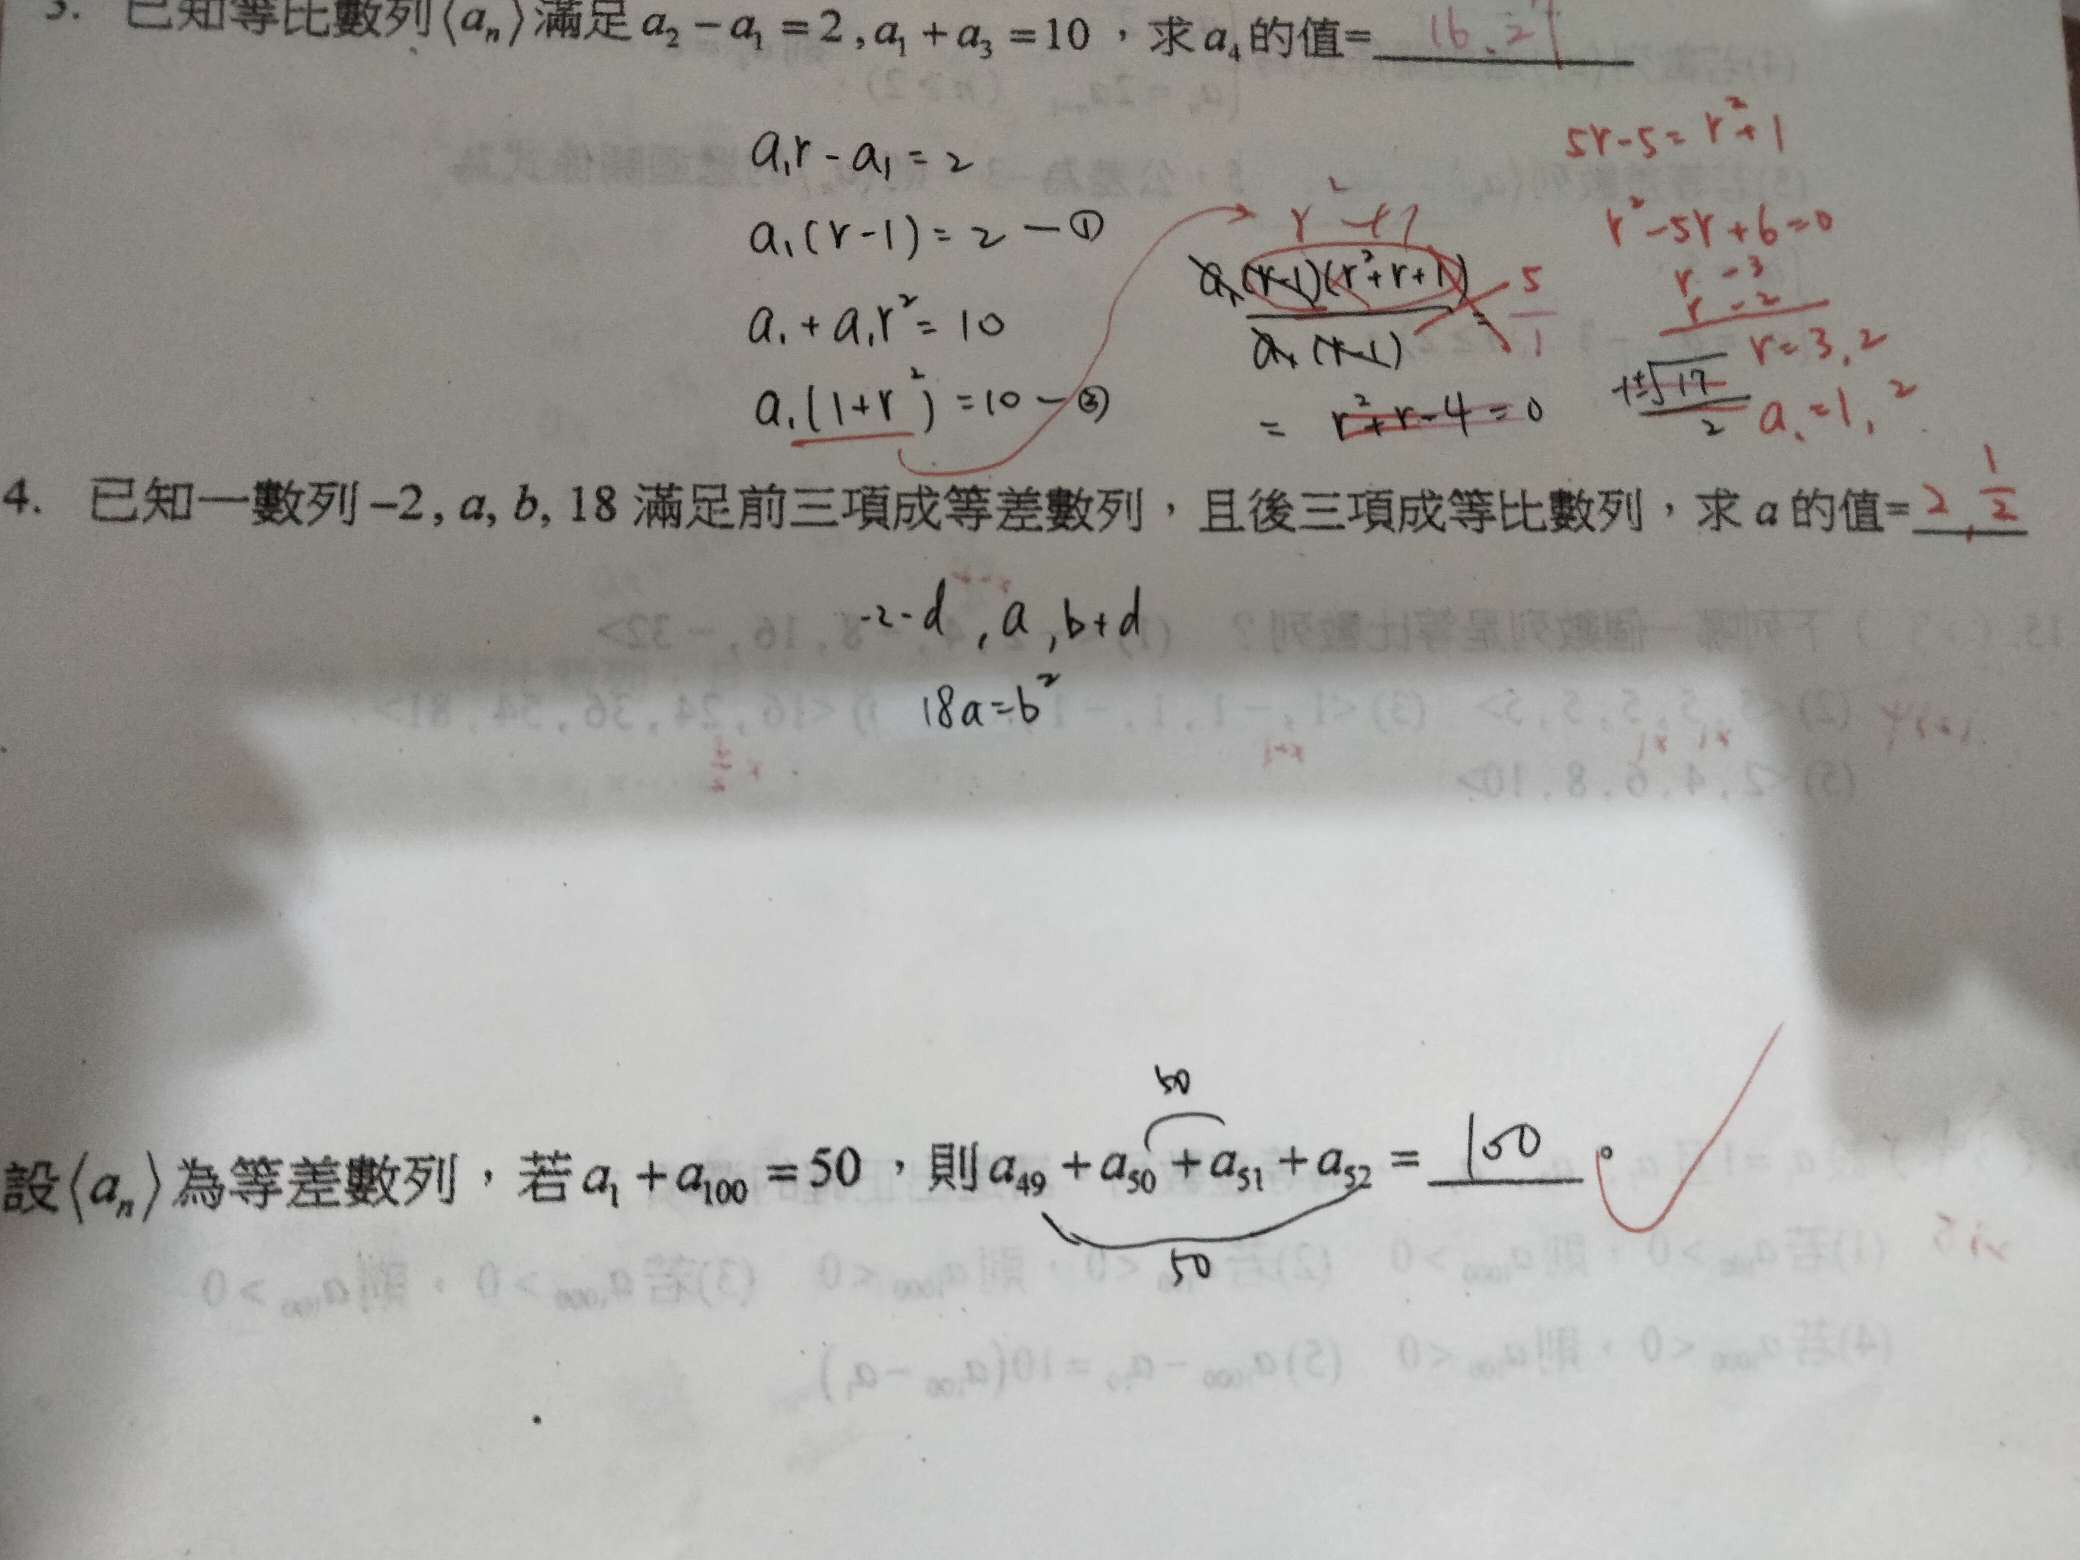 3. 已知等比數列⟨aₙ⟩滿足 a₂ − a₁ = 2, a₁ + a₃ = 10，求 a₄ 的值= 16, 27
a₁r − a₁ = 2
a₁(r−1) = 2 — ①
a₁ + a₁r² = 10
a₁(1+r²) = 10 — ②
r²+1
a₁(r−1)(r²+r+1)
a₁(r−1)
= 5
1
= r²+r−4=0
5r−5=r²+1
r²−5r+6=0
r −3
r −2
r=3,2
−1±√17
2
a₁=1, 2
4. 已知一數列 −2, a, b, 18 滿足前三項成等差數列，且後三項成等比數列，求 a 的值= 2, 1/2
−2−d, a, b+d
18a=b²
50
設⟨aₙ⟩為等差數列，若 a₁ + a₁₀₀ = 50，則 a₄₉ + a₅₀ + a₅₁ + a₅₂ = 100 。
50